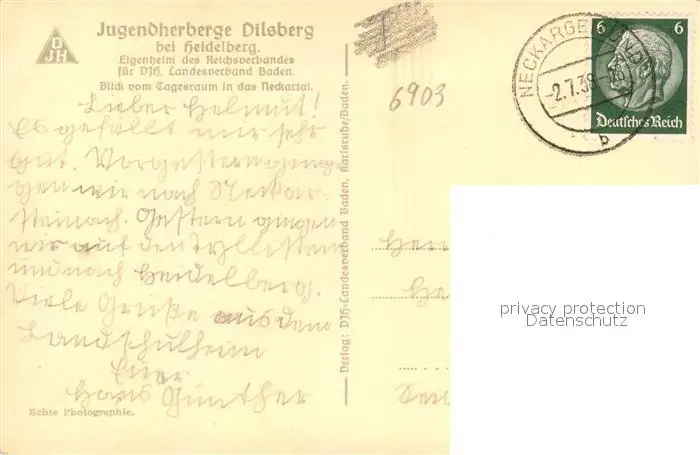 DJH
Jugendherberge Dilsberg
bei Heidelberg.
Eigenheim des Reichsverbandes
für DJH. Landesverband Baden.
Blick vom Tagesraum in das Neckartal.
Lieber Helmut!
Es gefällt mir sehr
gut. Vorgestern gin-
gen wir nach Neckar-
steinach. Gestern gingen
wir auf den
und nach Heidelberg.
Viele Grüße aus dem
Landschulheim
Euer
Hans Günther
Echte Photographie.
Verlag: DJH-Landesverband Baden, Karlsruhe/Baden.
6903
NECKARGEMÜND
-2.7.38
b
6 6
Deutsches Reich
privacy protection
Datenschutz